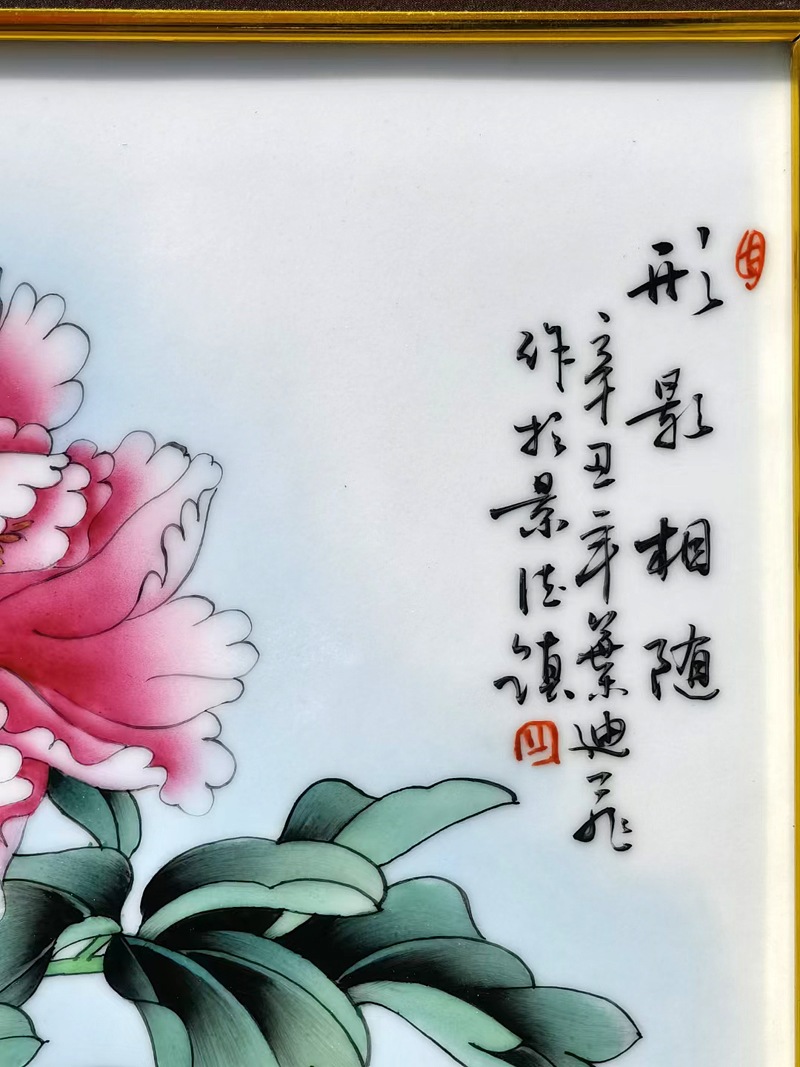 形影相随
辛丑年叶迪飞
作于景德镇